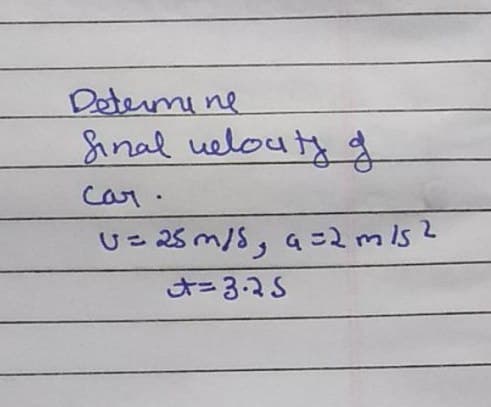 Determine
final velocity of
car.
u = 25 m/s, a = 2 m/s2
t = 3.2s